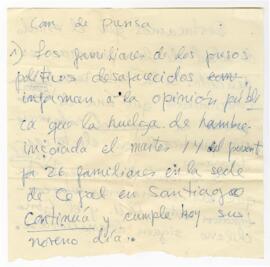 Con de prensa
1) Los familiares de los presos
políticos desaparecidos
informan a la opinión públi
ca que la huelga de hambre
iniciada el martes 14 del present
por 26 familiares en la sede
de Cepal en Santiago
Continúa y cumple hoy sus
noveno día.